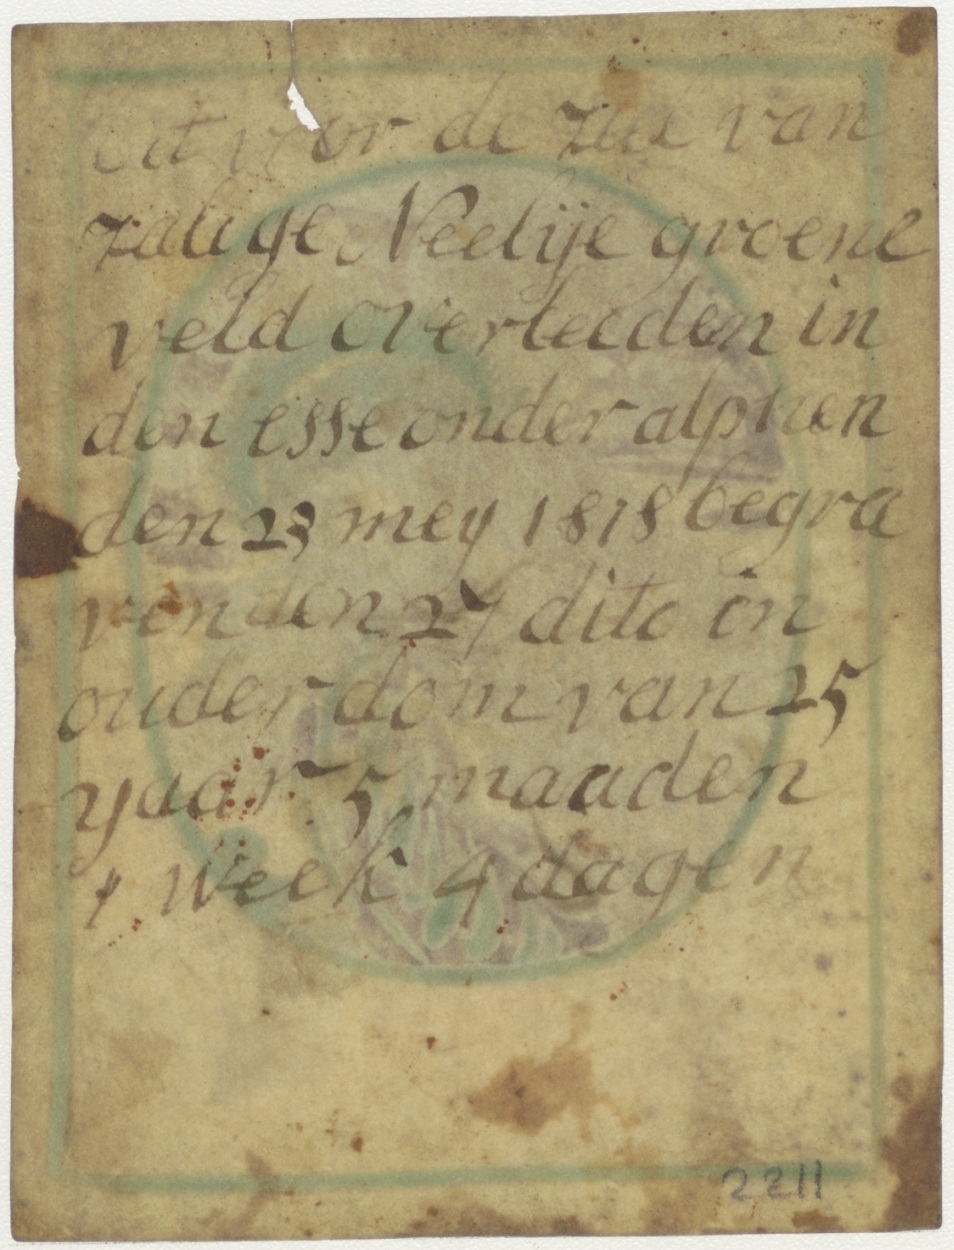 bit voor de ziel van
zalige Neelije groene
veld overleeden in
den esse onder alphen
den 23 mey 1818 begra
ven den 27 dito in
ouderdom van 25
yaar 5 maaden
1 Week 4 dagen
2211